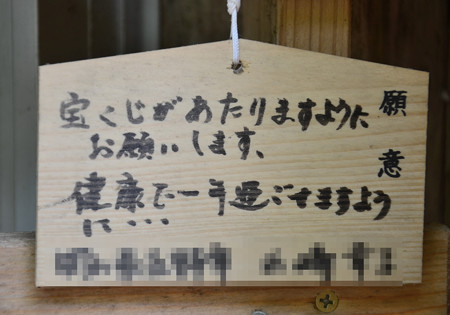 願意
宝くじがあたりますように
お願いします、
健康で一年過ごせますよう
に…